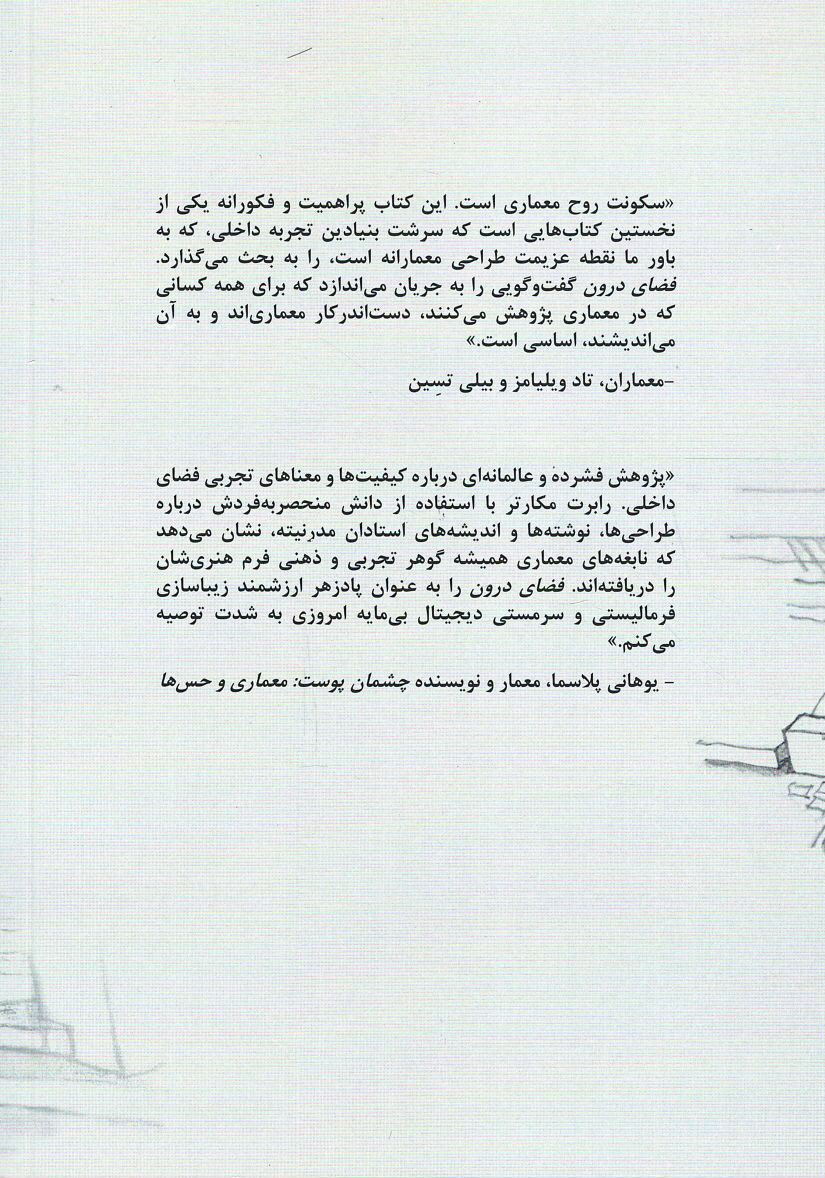 «سکونت روح معماری است. این کتاب پراهمیت و فکورانه یکی از
نخستین کتاب‌هایی است که سرشت بنیادین تجربه داخلی، که به
باور ما نقطه عزیمت طراحی معمارانه است، را به بحث می‌گذارد.
فضای درون گفت‌وگویی را به جریان می‌اندازد که برای همه کسانی
که در معماری پژوهش می‌کنند، دست‌اندرکار معماری‌اند و به آن
می‌اندیشند، اساسی است.»
-معماران، تاد ویلیامز و بیلی تسِین
«پژوهش فشرده و عالمانه‌ای درباره کیفیت‌ها و معناهای تجربی فضای
داخلی. رابرت مکارتر با استفاده از دانش منحصربه‌فردش درباره
طراحی‌ها، نوشته‌ها و اندیشه‌های استادان مدرنیته، نشان می‌دهد
که نابغه‌های معماری همیشه گوهر تجربی و ذهنی فرم هنری‌شان
را دریافته‌اند. فضای درون را به عنوان پادزهر ارزشمند زیباسازی
فرمالیستی و سرمستی دیجیتال بی‌مایه امروزی به شدت توصیه
می‌کنم.»
- یوهانی پلاسما، معمار و نویسنده چشمان پوست: معماری و حس‌ها